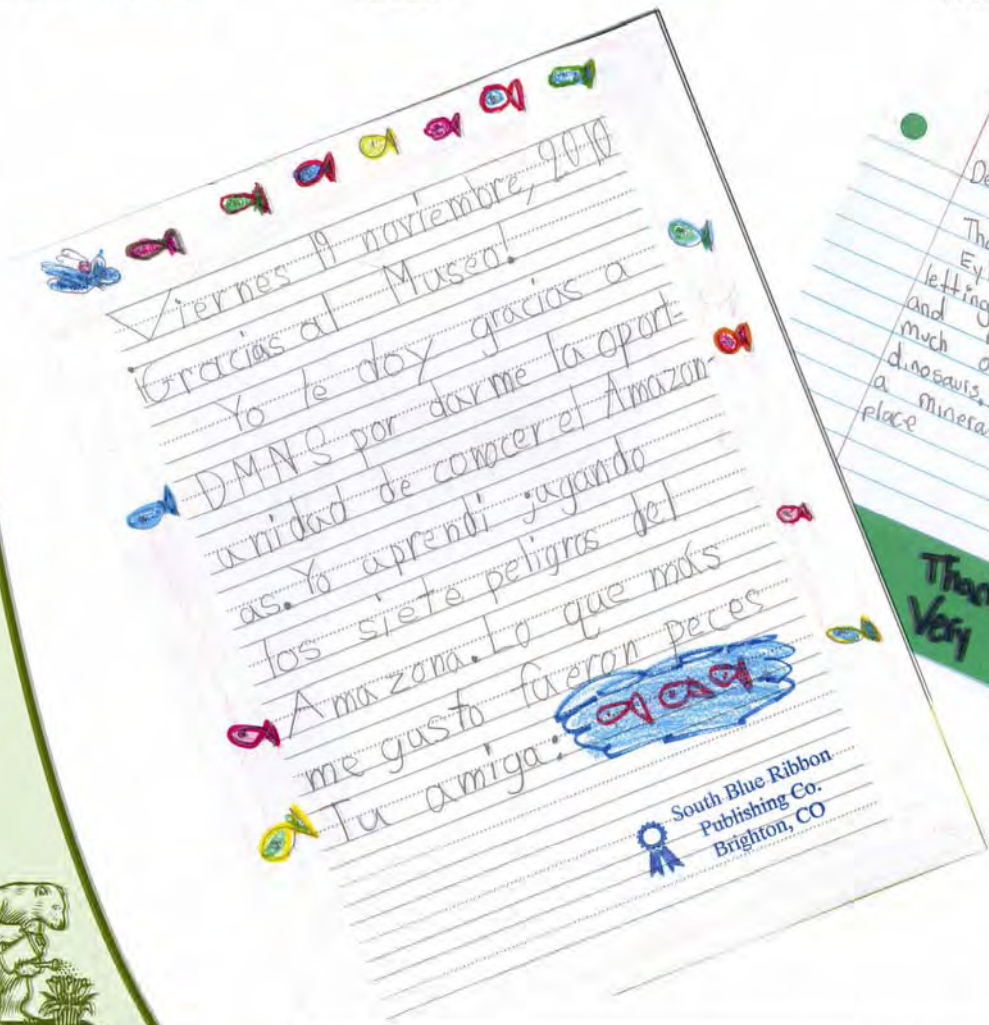 Viernes 19 noviembre, 2010
¡Gracias al Museo!
Yo le doy gracias a
DMNS por darme la oport-
unidad de conocer el Amazon-
as. Yo aprendi jugando
los siete peligros del
Amazona. Lo que más
me gusto fueron peces
Tu amiga:
South Blue Ribbon
Publishing Co.
Brighton, CO
letting
and
much
dinosaurs.
a
place
Very